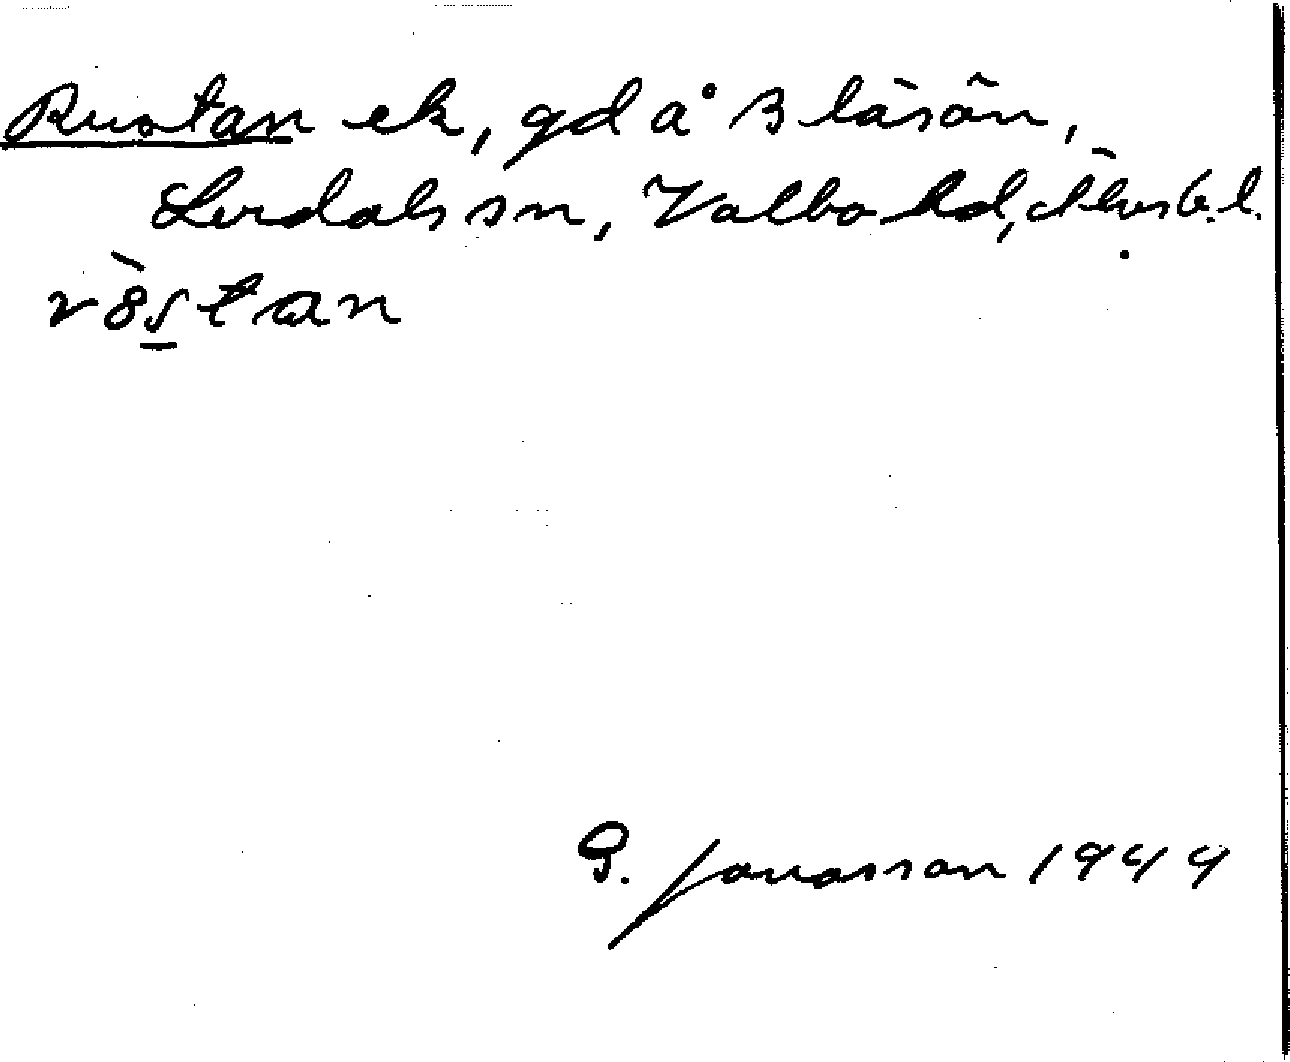 Rustan ek, gd å Bläsän,
Lerdals sn, Valbo hd, Älvsb. l.
G. Jonasson 1944